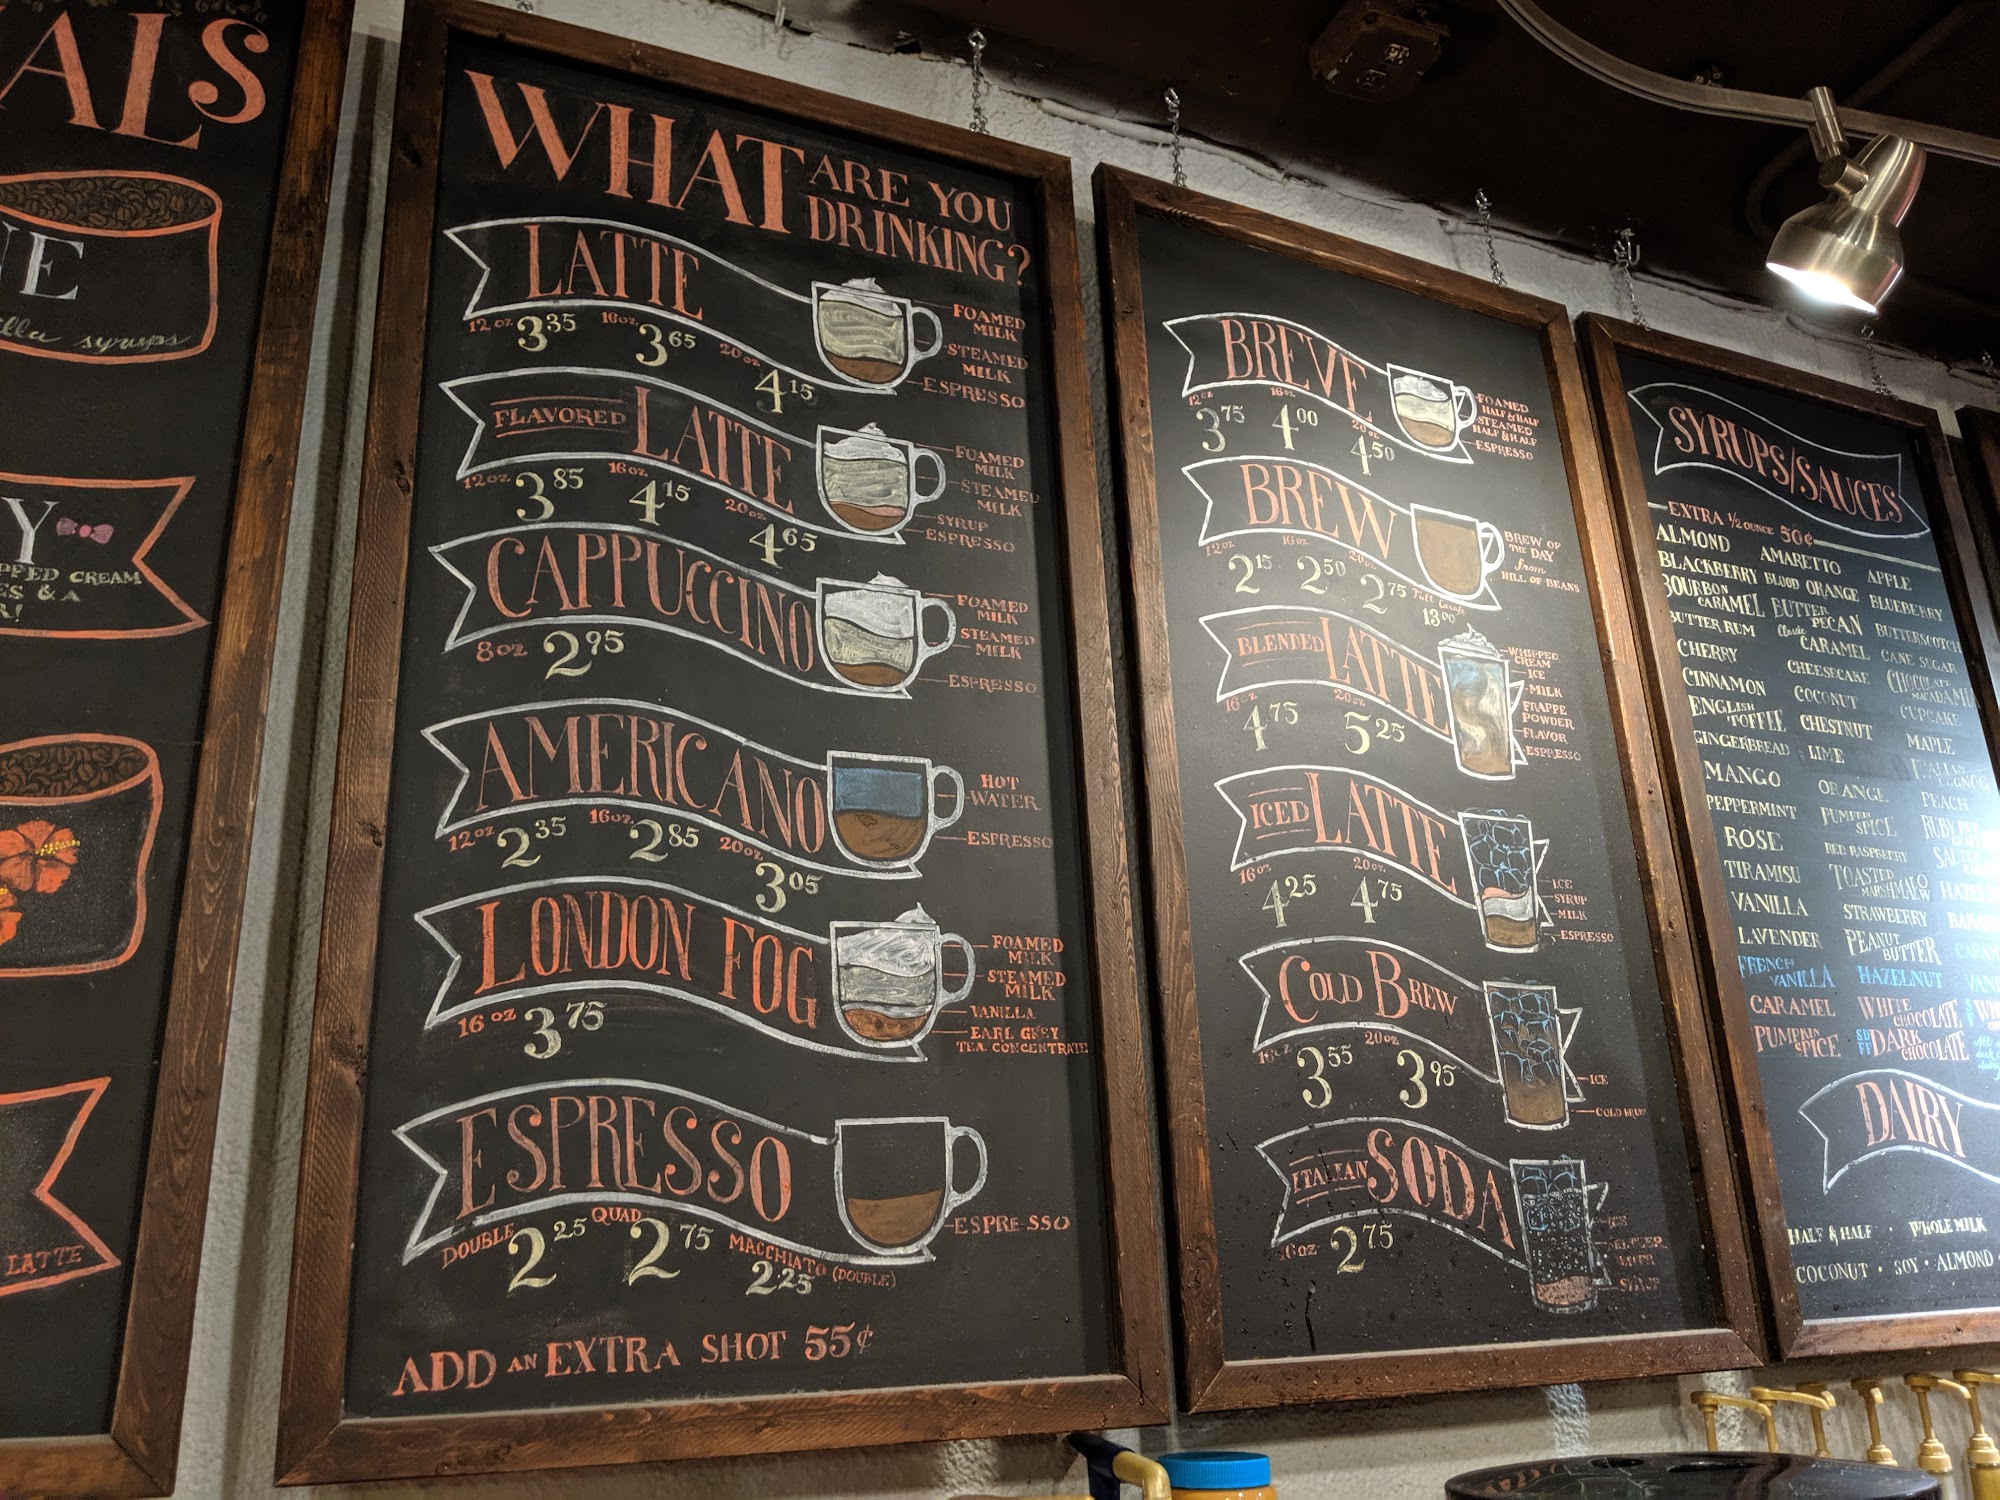 ALS
NE
lla syrups
Y
PPED CREAM
ES & A
R!
LATTE
WHAT ARE YOU
DRINKING?
LATTE
12 oz 3.35 16 oz 3.65 20 oz 4.15
FOAMED
MILK
STEAMED
MILK
ESPRESSO
FLAVORED LATTE
12 oz 3.85 16 oz 4.15 20 oz 4.65
FOAMED
MILK
STEAMED
MILK
SYRUP
ESPRESSO
CAPPUCCINO
8 oz 2.95
FOAMED
MILK
STEAMED
MILK
ESPRESSO
AMERICANO
12 oz 2.35 16 oz 2.85 20 oz 3.05
HOT
WATER
ESPRESSO
LONDON FOG
16 oz 3.75
FOAMED
MILK
STEAMED
MILK
VANILLA
EARL GREY
TEA CONCENTRATE
ESPRESSO
DOUBLE 2.25 QUAD 2.75 MACCHIATO (DOUBLE) 2.25
ESPRESSO
ADD AN EXTRA SHOT 55¢
BREVE
12 oz 3.75 16 oz 4.00 20 oz 4.50
FOAMED
HALF & HALF
STEAMED
HALF & HALF
ESPRESSO
BREW
12 oz 2.15 16 oz 2.50 20 oz 2.75 Full Carafe 13.00
BREW OF
THE DAY
from
HILL OF BEANS
BLENDED LATTE
16 oz 4.75 20 oz 5.25
WHIPPED
CREAM
ICE
MILK
FRAPPE
POWDER
FLAVOR
ESPRESSO
ICED LATTE
16 oz 4.25 20 oz 4.75
ICE
SYRUP
MILK
ESPRESSO
COLD BREW
16 oz 3.55 20 oz 3.95
ICE
COLD BREW
ITALIAN SODA
16 oz 2.75
ICE
SELTZER
WATER
SYRUP
SYRUPS/SAUCES
EXTRA ½ OUNCE 50¢
ALMOND AMARETTO APPLE
BLACKBERRY BLOOD ORANGE BLUEBERRY
BOURBON CARAMEL BUTTER PECAN BUTTERSCOTCH
BUTTER RUM Classic CARAMEL CANE SUGAR
CHERRY CHEESECAKE CHOCOLATE MACADAMIA
CINNAMON COCONUT CUPCAKE
ENGLISH TOFFEE CHESTNUT MAPLE
GINGERBREAD LIME ITALIAN EGGNOG
MANGO ORANGE PEACH
PEPPERMINT PUMPKIN SPICE RUBY RED
ROSE RED RASPBERRY
TIRAMISU TOASTED MARSHMALLOW HAZEL
VANILLA STRAWBERRY BANA
LAVENDER PEANUT BUTTER CARAM
FRENCH VANILLA HAZELNUT VAN
CARAMEL WHITE CHOCOLATE
PUMPKIN SPICE DARK CHOCOLATE
DAIRY
HALF & HALF · WHOLE MILK
COCONUT · SOY · ALMOND